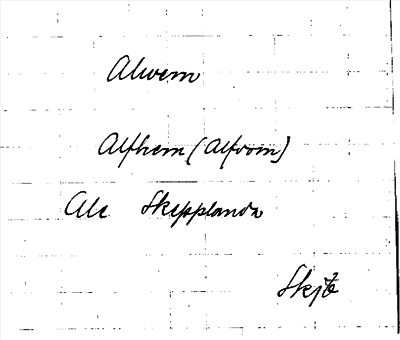 Alvem
Alfhem (Alfvem)
Ale Skepplanda